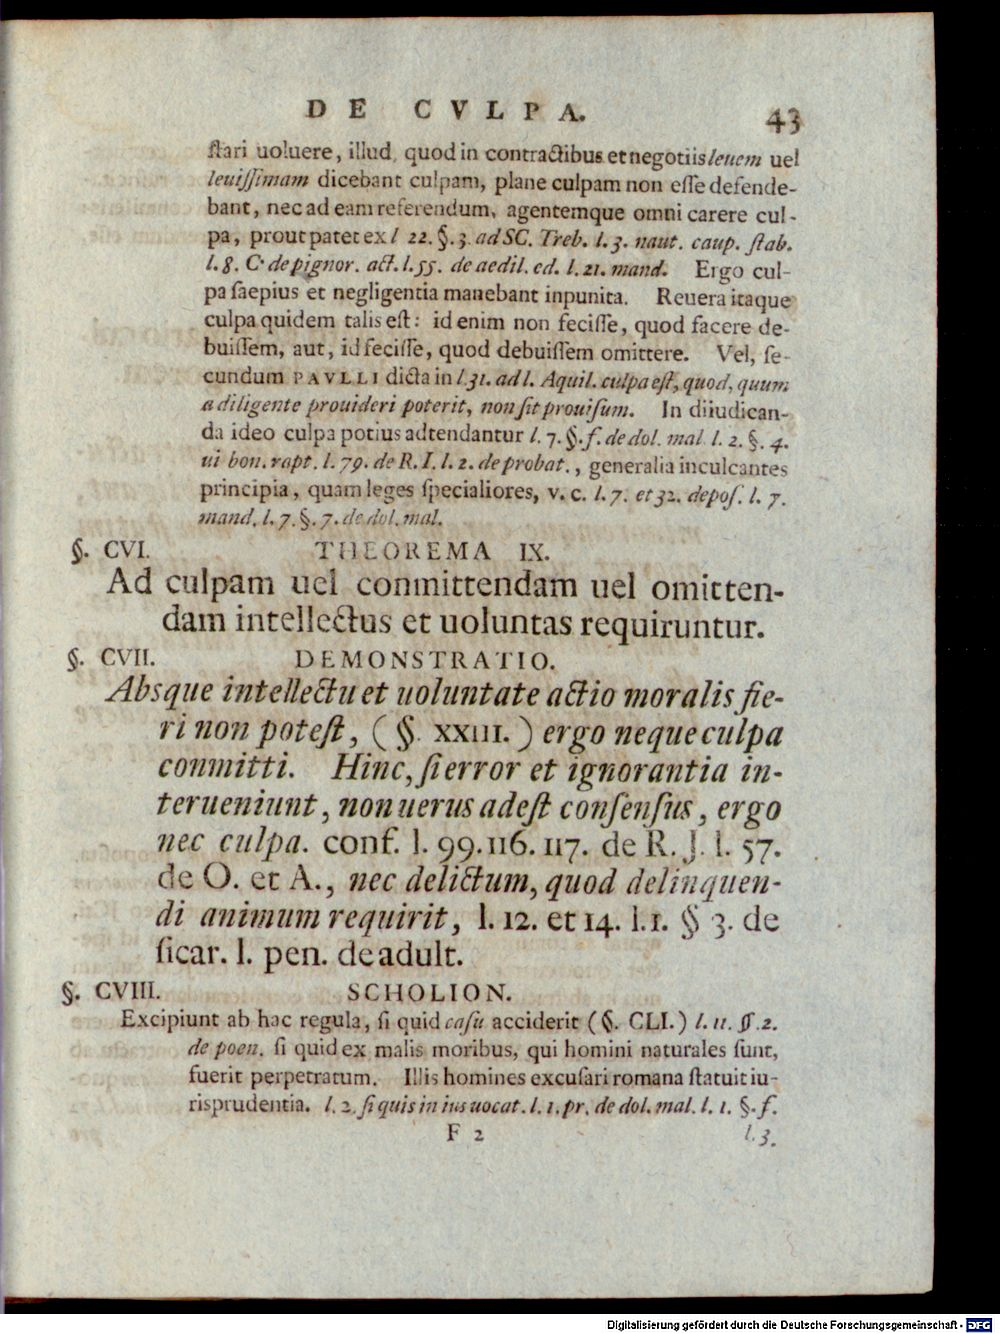 DE CVLPA. 43
ſtari uoluere, illud, quod in contractibus et negotiis leuem uel
leuiſſimam dicebant culpam, plane culpam non eſſe defende-
bant, nec ad eam referendum, agentemque omni carere cul-
pa, prout patet ex l 22. §. 3. ad SC. Treb. l. 3. naut. caup. ſtab.
l. 8. C de pignor. act. l. 55. de aedil. ed. l. 21. mand. Ergo cul-
pa ſaepius et negligentia manebant inpunita. Reuera itaque
culpa quidem talis eſt: id enim non feciſſe, quod facere de-
buiſſem, aut, id feciſſe, quod debuiſſem omittere. Vel, ſe-
cundum PAVLLI dicta in l. 31. ad l. Aquil. culpa eſt, quod, quum
a diligente prouideri poterit, non ſit prouiſum. In diiudican-
da ideo culpa potius adtendantur l. 7. §. f. de dol. mal l. 2. §. 4.
ui bon. rapt. l. 79. de R. I. l. 2. de probat., generalia inculcantes
principia, quam leges ſpecialiores, v. c. l. 7. et 32. depoſ. l. 7.
mand. l. 7. §. 7. de dol. mal.
§. CVI. THEOREMA IX.
Ad culpam uel conmittendam uel omitten-
dam intellectus et uoluntas requiruntur.
§. CVII. DEMONSTRATIO.
Absque intellectu et uoluntate actio moralis fie-
ri non poteſt, (§. XXIII.) ergo neque culpa
conmitti. Hinc, ſi error et ignorantia in-
terueniunt, non uerus adeſt conſenſus, ergo
nec culpa. conf. l. 99. 116. 117. de R. J. l. 57.
de O. et A., nec delictum, quod delinquen-
di animum requirit, l. 12. et 14. l. 1. § 3. de
ſicar. l. pen. de adult.
§. CVIII. SCHOLION.
Excipiunt ab hac regula, ſi quid caſu acciderit (§. CLI.) l. 11. §. 2.
de poen. ſi quid ex malis moribus, qui homini naturales ſunt,
fuerit perpetratum. Illis homines excuſari romana ſtatuit iu-
risprudentia. l. 2. ſi quis in ius uocat. l. 1. pr. de dol. mal. l. 1. §. f.
F 2 l. 3.
Digitalisierung gefördert durch die Deutsche Forschungsgemeinschaft - DFG